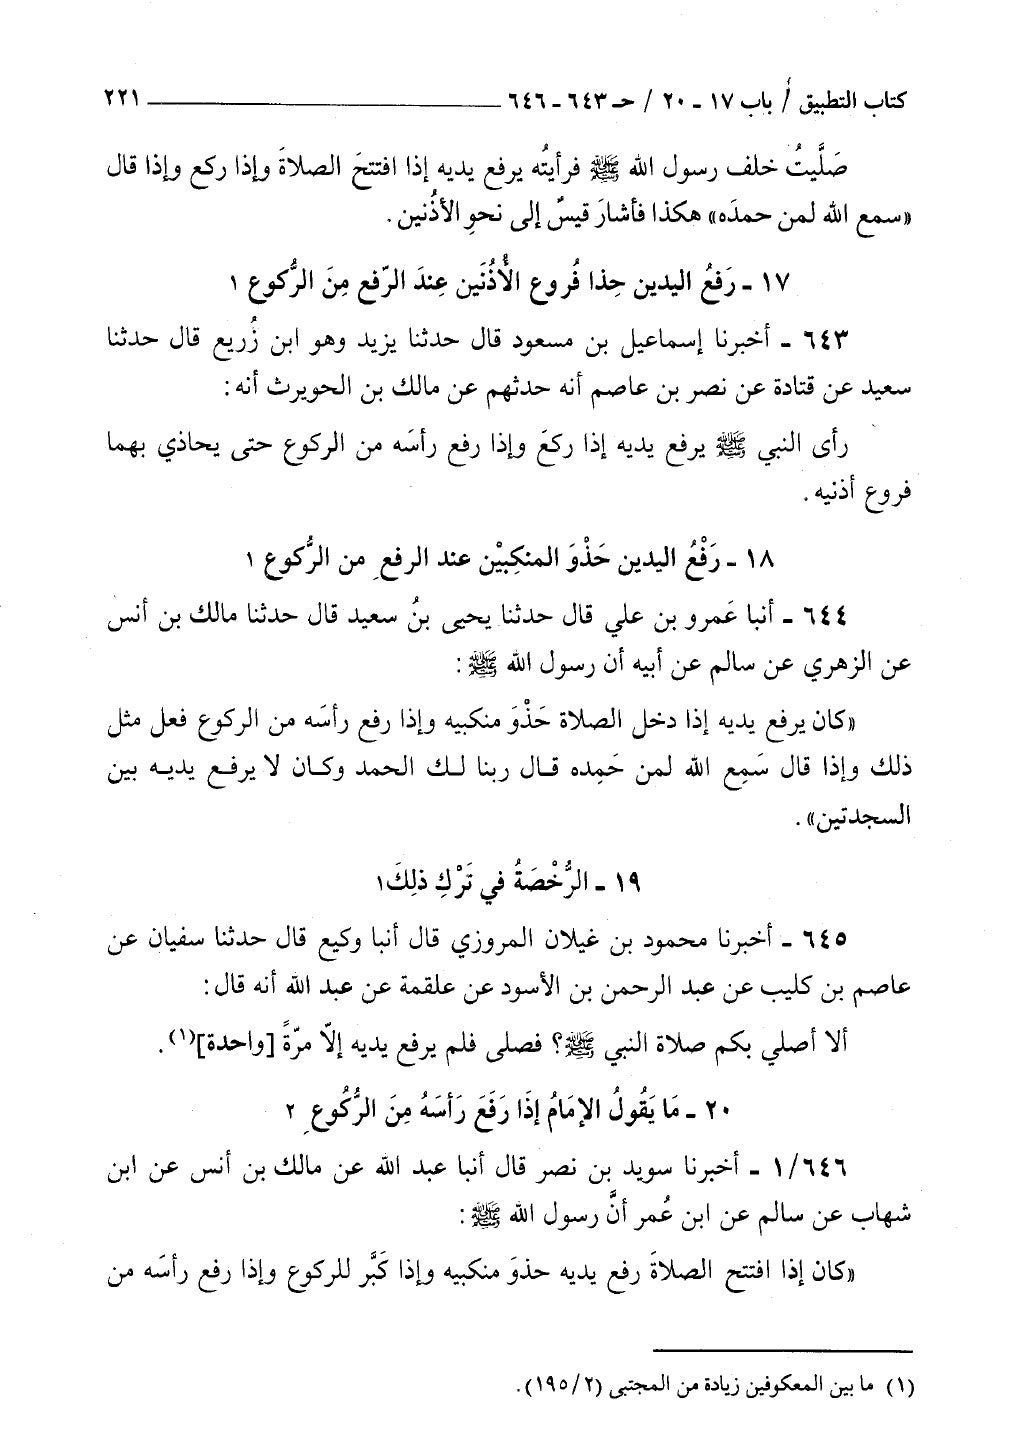 كتاب التطبيق / باب ١٧ - ٢٠ / حـ ٦٤٣ - ٦٤٦ ٢٢١
صَلَّيتُ خلف رسول الله ﷺ فرأيتُه يرفع يديه إذا افتتحَ الصلاةَ وإذا ركع وإذا قال
«سمع الله لمن حمدَه» هكذا فأشارَ قيسٌ إلى نحوِ الأذُنين.
١٧ - رَفعُ اليدين حِذا فُروع الأُذُنَين عِندَ الرّفع مِنَ الرُّكوع ١
٦٤٣ - أخبرنا إسماعيل بن مسعود قال حدثنا يزيد وهو ابن زُريع قال حدثنا
سعيد عن قتادة عن نصر بن عاصم أنه حدثهم عن مالك بن الحويرث أنه:
رأى النبي ﷺ يرفع يديه إذا ركعَ وإذا رفع رأسَه من الركوع حتى يحاذي بهما
فروع أذنيه.
١٨ - رَفْعُ اليدين حَذْوَ المنكِبيْن عند الرفعِ من الرُّكوع ١
٦٤٤ - أنبا عَمرو بن علي قال حدثنا يحيى بنُ سعيد قال حدثنا مالك بن أنس
عن الزهري عن سالم عن أبيه أن رسول الله ﷺ:
«كان يرفع يديه إذا دخل الصلاة حَذْوَ منكبيه وإذا رفع رأسَه من الركوع فعل مثل
ذلك وإذا قال سَمِع الله لمن حَمِده قال ربنا لك الحمد وكان لا يرفع يديه بين
السجدتين».
١٩ - الرُّخْصَةُ في تَرْكِ ذلِكَ ١
٦٤٥ - أخبرنا محمود بن غيلان المروزي قال أنبا وكيع قال حدثنا سفيان عن
عاصم بن كليب عن عبد الرحمن بن الأسود عن علقمة عن عبد الله أنه قال:
ألا أصلي بكم صلاة النبي ﷺ؟ فصلى فلم يرفع يديه إلّا مرّةً [واحدة](١).
٢٠ - مَا يَقُولُ الإمَامُ إذَا رَفَعَ رَأسَهُ مِنَ الرُّكُوعِ ٢
١/٦٤٦ - أخبرنا سويد بن نصر قال أنبا عبد الله عن مالك بن أنس عن ابن
شهاب عن سالم عن ابن عُمر أنَّ رسول الله ﷺ:
«كان إذا افتتح الصلاةَ رفع يديه حذوَ منكبيه وإذا كَبَّر للركوع وإذا رفع رأسَه من
(١) ما بين المعكوفين زيادة من المجتبى (١٩٥/٢).